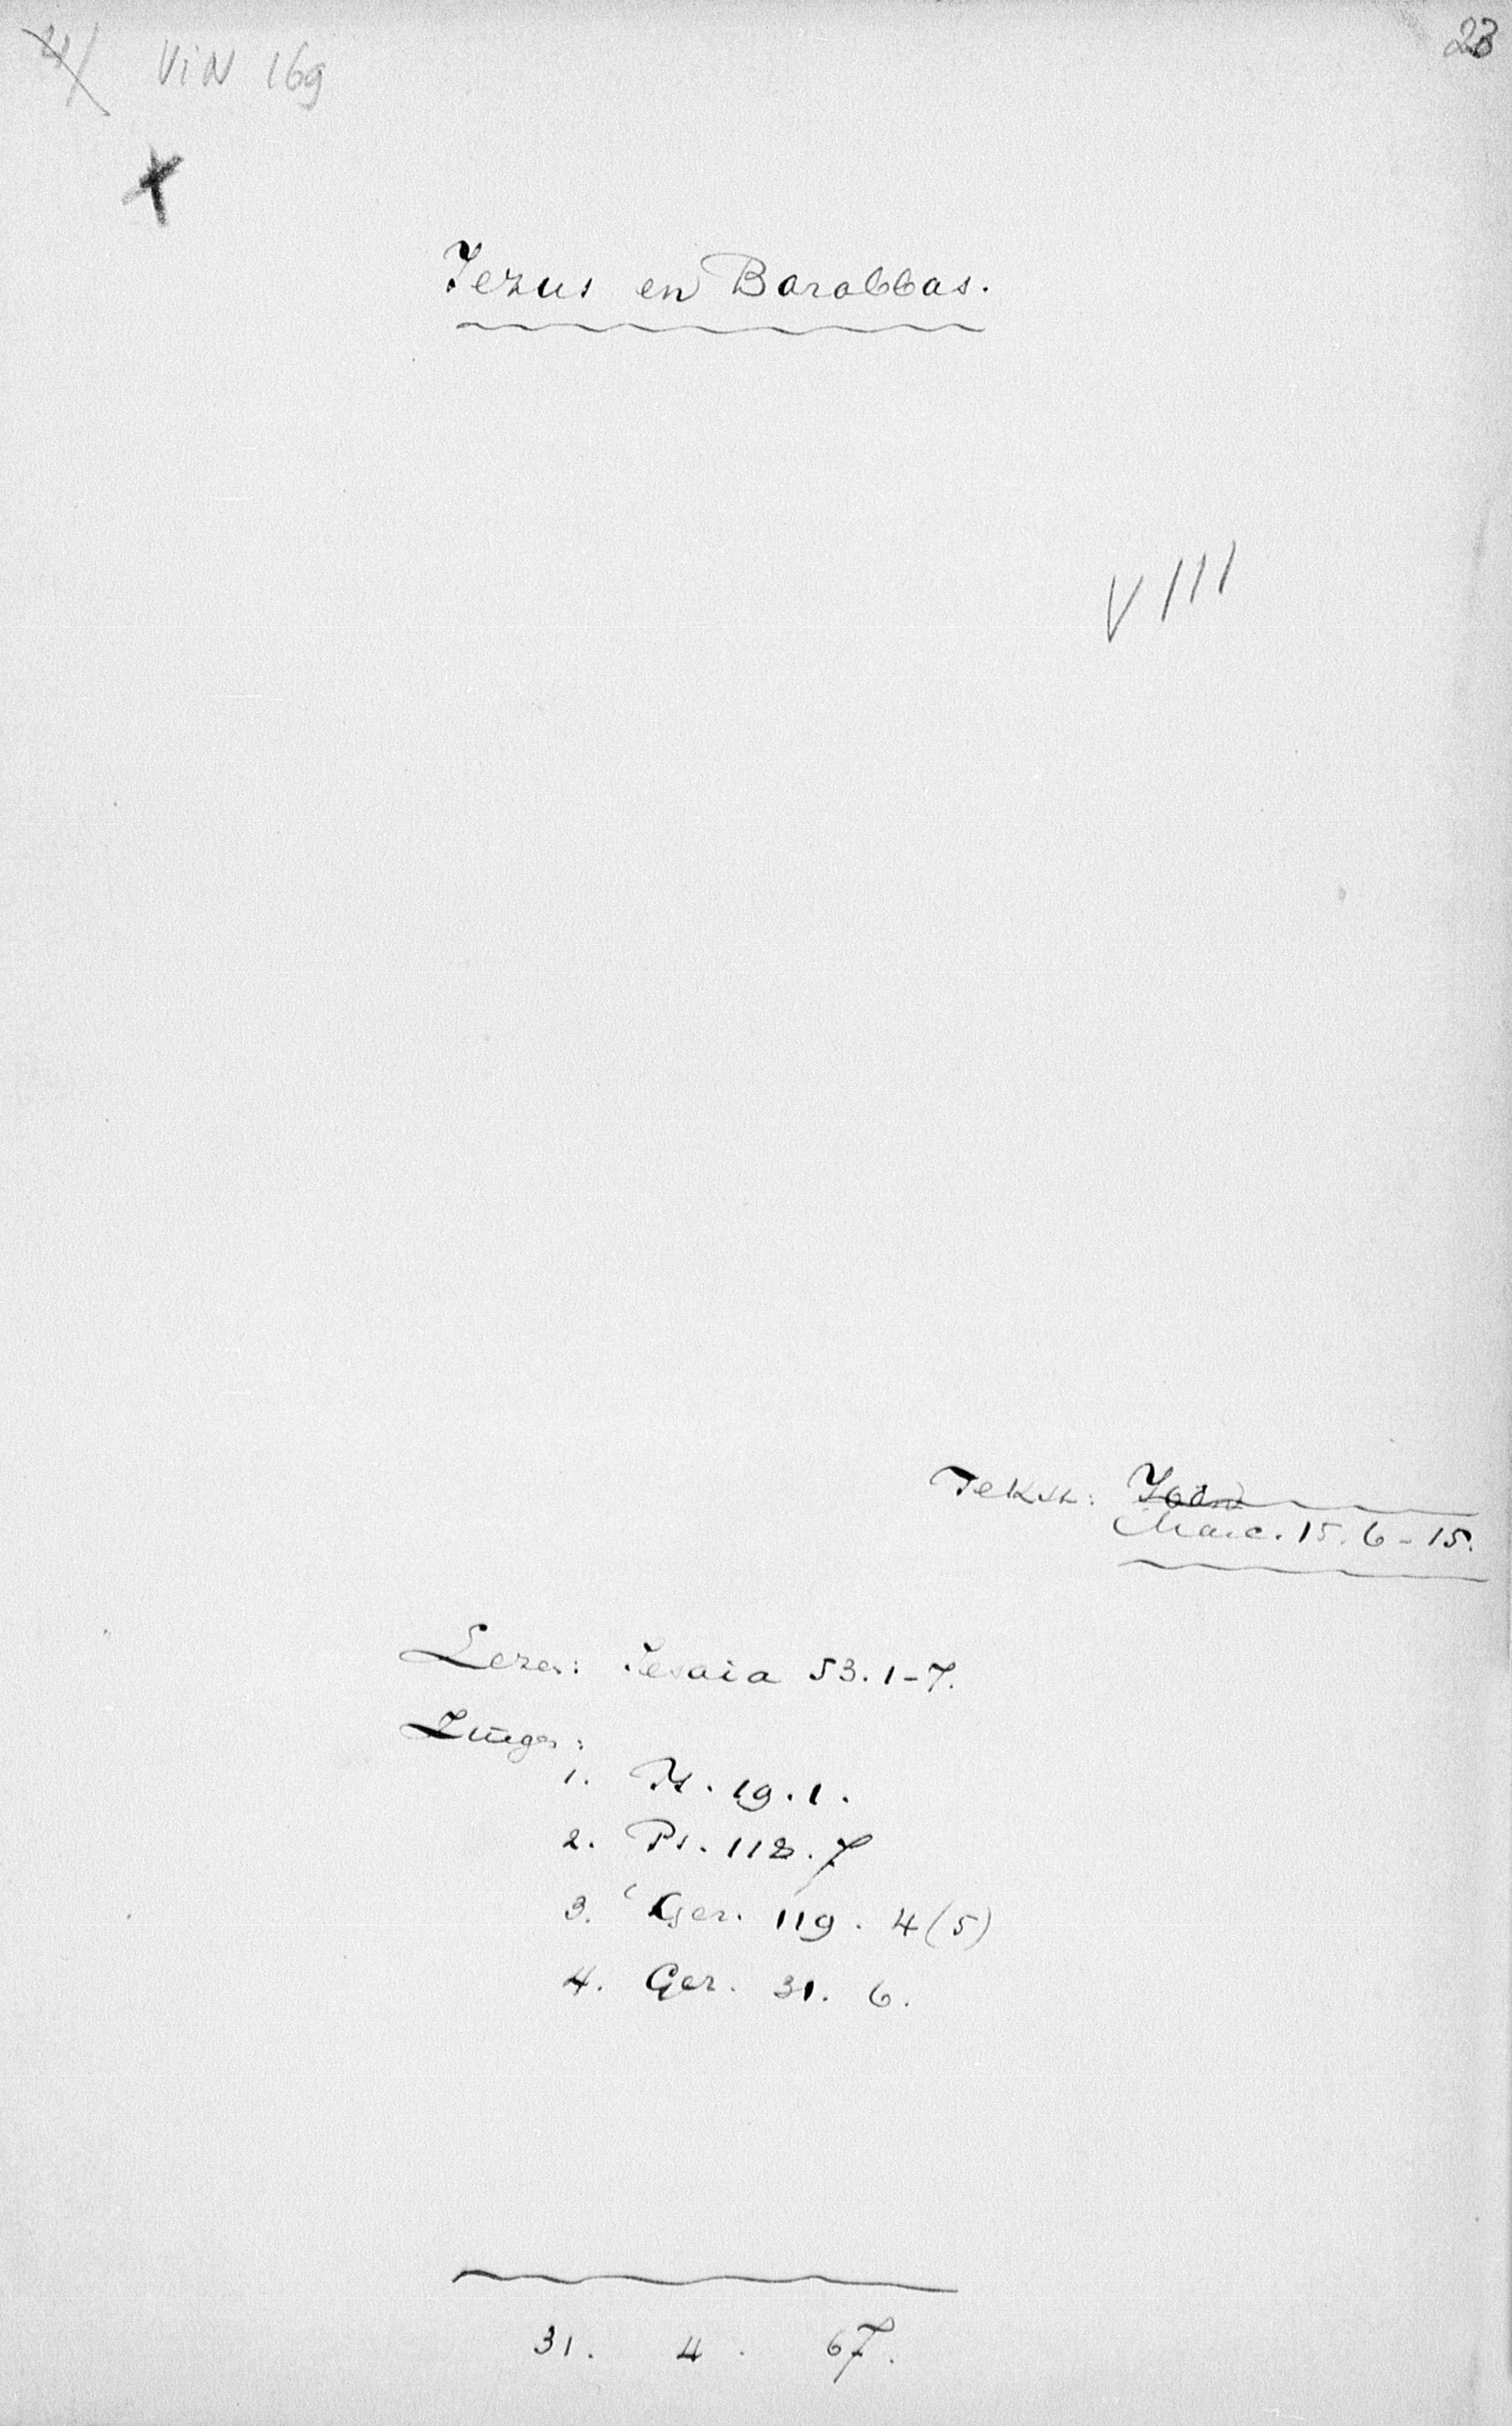 VIN 169
23
Jezus en Barabbas.
VIII
Tekst: Joan
Marc. 15. 6-15.
Lezen: Jesaia 53. 1-7.
Zingen:
1. Ps. 19. 1.
2. Ps. 118. 7
3. Gez. 119. 4 (5)
4. Gez. 31. 6.
31. 4. 67.